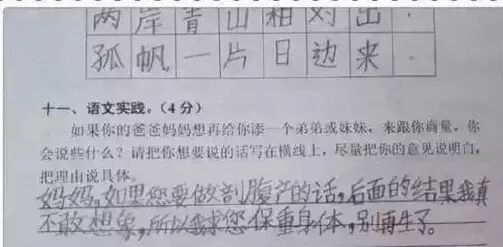 两岸青山相对出.
孤帆一片日边来.
十一、语文实践。(4分)
如果你的爸爸妈妈想再给你添一个弟弟或妹妹，来跟你商量，你
会说些什么？请把你想要说的话写在横线上，尽量把你的意见说明白，
把理由说具体。
妈妈,如果您要做剖腹产的话,后面的结果我真
不敢想象,所以我求您保重身体,别再生了。